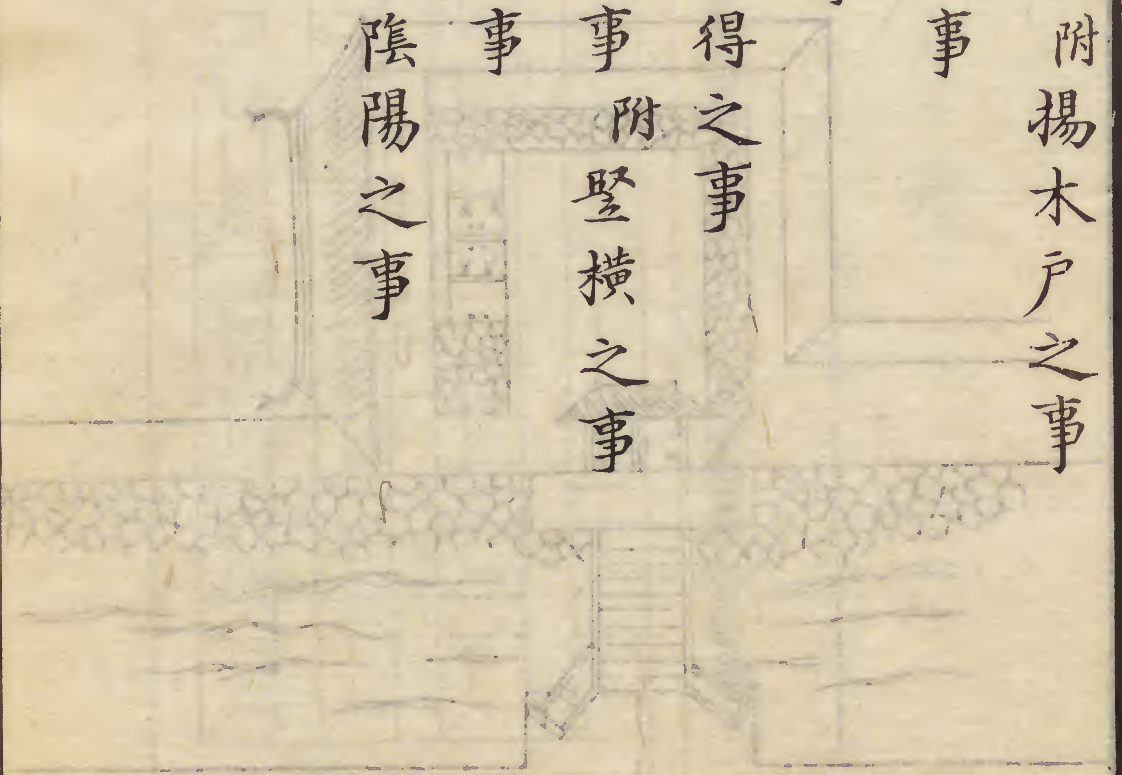 附揚木戸之事
事
得之事
事 附竪横之事
事
陰陽之事